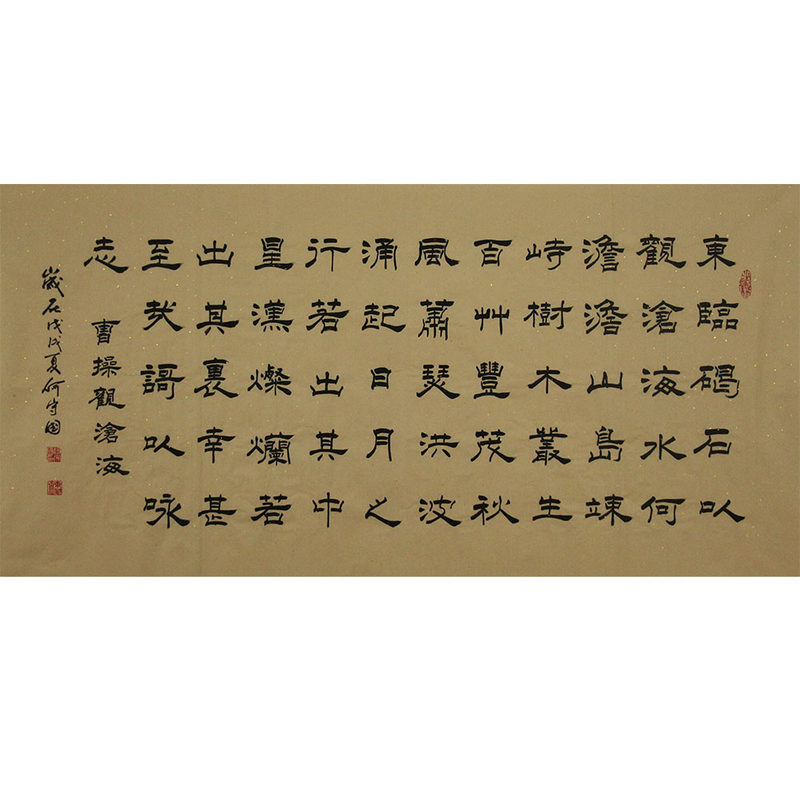 東臨碣石以
觀滄海水何
澹澹山島竦
峙樹木叢生
百艸豐茂秋
風蕭瑟洪波
涌起日月之
行若出其中
星漢燦爛若
出其裏幸甚
至哉謌以咏
志
曹操觀滄海
歲在戊戌夏何守國